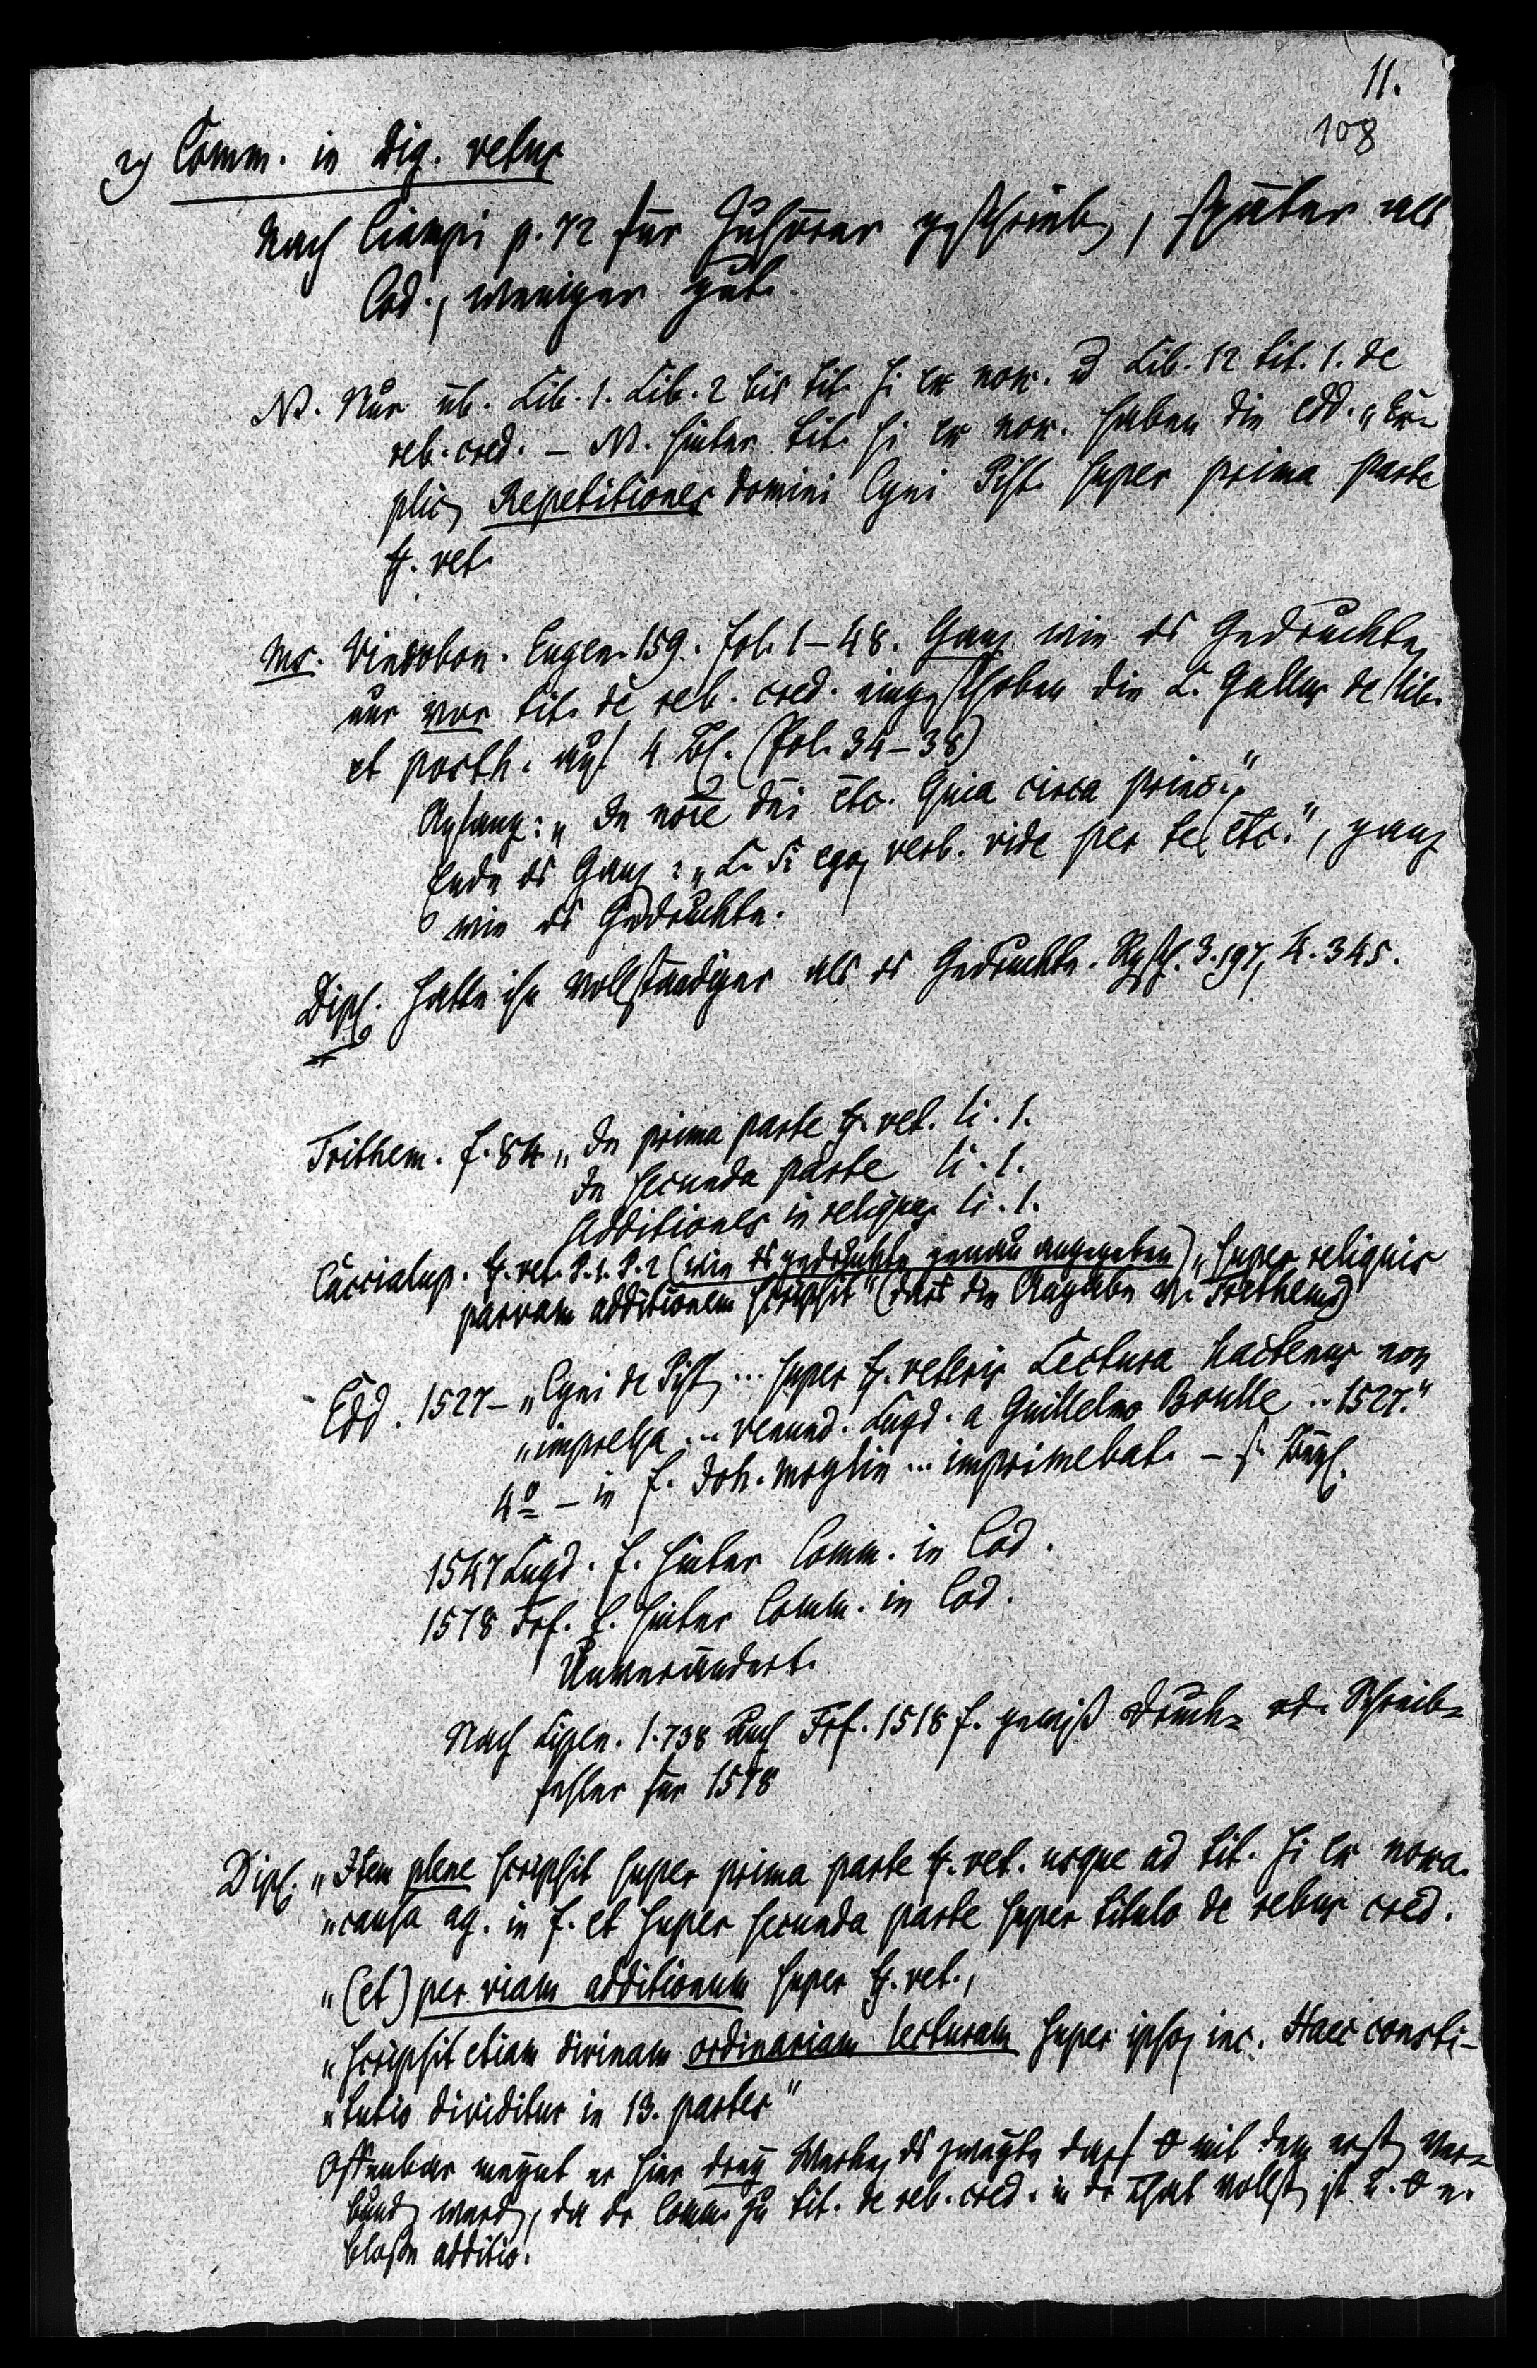 11.
108
2) Comm. in Dig. vetus
Nach Ciampi p. 72 für Zuhörer geschrieben, später als
Cod., weniger gut.
NB. Nur üb. Lib. 1. Lib. 2 bis tit. si ex nox. u Lib. 12 tit. 1. de
reb. cred. – NB. hinter tit. si ex nox. haben die Edd. „Ex-
plic. Repetitiones domini Cyni Pist. super prima parte
ff. vet.
Ms. Vindobon. Eugen. 159. fol. 1–48. Ganz wie das Gedruckte,
nur vor tit. de reb. cred. eingeschoben die L. Gallus de lib.
et posth. auf 4 Bl. (fol. 34–38)
Anfang: „In noie dni etc. Quia circa princ."
Ende des Ganzen: „L. Si ego, verb. vide per te, etc.", ganz
wie das Gedruckte.
Dipl. hatte ihn vollständiger als das Gedruckte. 3. 197, 4. 345.
Trithem. f. 84 „In prima parte ff. vet. li. 1.
In secunda parte li. 1.
Additiones in reliquas li. 1.
Caccialup. ff. vet. P. 1. P. 2 (wie das gedruckte genau angegeben) „super reliquis
parvam additionem scripsit" (dies die Angabe v. Trithemius)
Edd. 1527 – „Cyni de Pist. ... super ff. veteris Lectura hactenus non
„impressa ... venund. Lugd. a Guillelmo Boulle .. 1527."
4º – in f. Joh. Moylin ... imprimebat. –
1547 Lugd. f. hinter Comm. in Cod.
1578 Frf. f. hinter Comm. in Cod.
Unverändert.
Nach Lipen. 1. 738 auch Frf. 1518 f. gewiß Druck- od. Schreib-
fehler für 1578
Dipl. „Item plene scripsit super prima parte ff. vet. usque ad tit. si ex noxa.
„causa ag. in f. et super secunda parte super titulo de rebus cred.
„(et) per viam additionum super ff. vet.,
„scripsit etiam divinam ordinariam lecturam super ipso, inc. Haec consti-
„tutio dividitur in 13. partes"
Offenbar meynt er hier drey Werke, das zweyte darf nicht mit dem ersten ver-
bunden werden, da der Comm. zu tit. de reb. cred. in der That vollst. ist u. nicht e.
bloße additio.